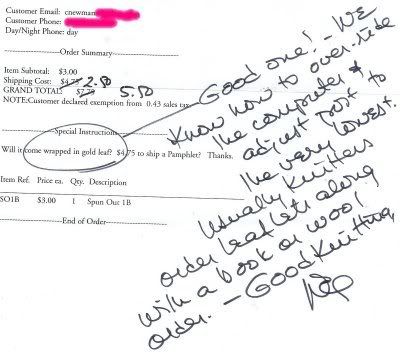 Customer Email: cnewman
Customer Phone:
Day/Night Phone: day
Order Summary
Item Subtotal: $3.00
Shipping Cost: $4.75 2.50
GRAND TOTAL: $7.75 5.50
NOTE:Customer declared exemption from 0.43 sales tax
Special Instructions
Will it come wrapped in gold leaf? $4.75 to ship a Pamphlet? Thanks.
Item Ref. Price ea. Qty. Description
SO1B $3.00 1 Spun Out 1B
End of Order
Good one! - We
know how to over-ride
the computer &
adjust post to
the very lowest.
Usually knitters
order leaflets along
with a book or wool
order. - Good Knitting,